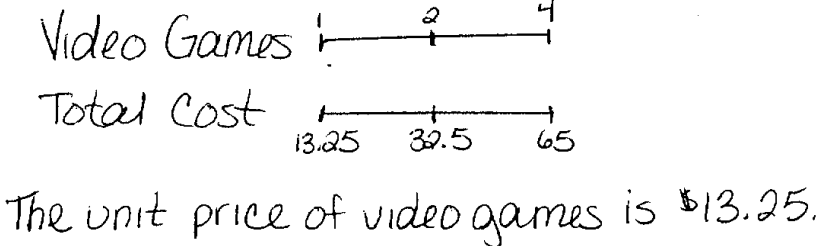 1 2 4
Video Games
Total Cost
13.25 32.5 65
The unit price of video games is $13.25.